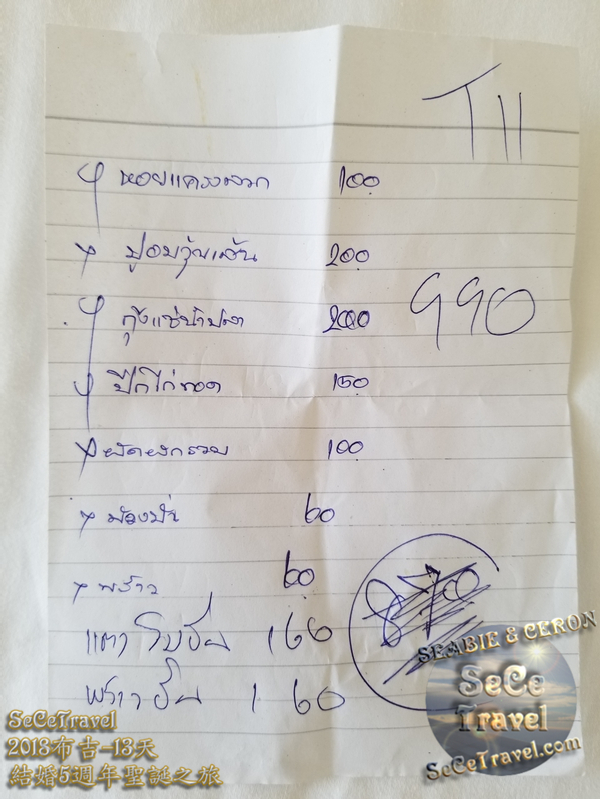 T11
หอยแครงลวก 100
ปูอบวุ้นเส้น 200
กุ้งแช่น้ำปลา 200
990
ปีกไก่ทอด 150
ผัดผักรวม 100
60
พร้าว 60
870
แตงโมปั่น 1 60
พร้าวปั่น 1 60
SEABIE & CERON
SeCe
Travel
SeCeTravel.com
SeCeTravel
2018布吉-13天
結婚5週年聖誕之旅